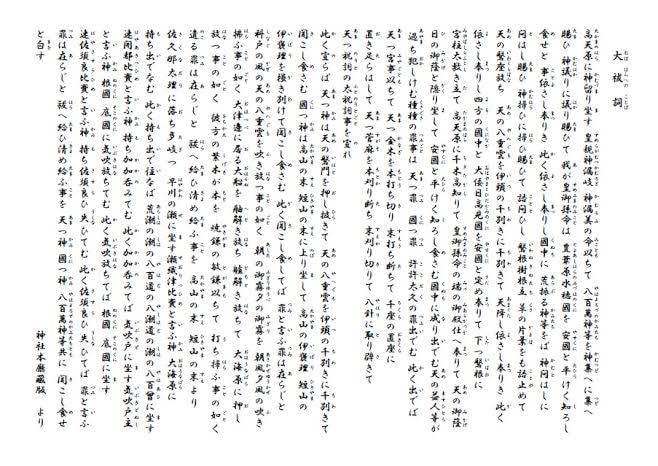 大祓詞
高天原に神留り坐す 皇親神漏岐 神漏美の命以ちて 八百萬神等を神集へに集へ
賜ひ 神議りに議り賜ひて 我が皇御孫命は 豊葦原水穂國を 安國と平けく知ろし
食せと 事依さし奉りき 此く依さし奉りし國中に 荒振る神等をば 神問はしに
問はし賜ひ 神掃ひに掃ひ賜ひて 語問ひし 磐根樹根立 草の片葉をも語止めて
天の磐座放ち 天の八重雲を伊頭の千別きに千別きて 天降し依さし奉りき 此く
依さし奉りし四方の國中と 大倭日高見國を安國と定め奉りて 下つ磐根に
宮柱太敷き立て 高天原に千木高知りて 皇御孫命の瑞の御殿仕へ奉りて 天の御蔭
日の御蔭と隠り坐して 安國と平けく知ろし食さむ國中に成り出でむ天の益人等が
過ち犯しけむ種種の罪事は 天つ罪 國つ罪 許許太久の罪出でむ 此く出でば
天つ宮事以ちて 天つ金木を本打ち切り 末打ち断ちて 千座の置座に
置き足らはして 天つ菅麻を本刈り断ち 末刈り切りて 八針に取り辟きて
天つ祝詞の太祝詞事を宣れ
此く宣らば 天つ神は天の磐門を押し披きて 天の八重雲を伊頭の千別きに千別きて
聞こし食さむ 國つ神は高山の末 短山の末に上り坐して 高山の伊褒理 短山の
伊褒理を掻き別けて聞こし食さむ 此く聞こし食してば 罪と言ふ罪は在らじと
科戸の風の天の八重雲を吹き放つ事の如く 朝の御霧 夕の御霧を 朝風 夕風の吹き
拂ふ事の如く 大津邊に居る大船を 舳解き放ち 艫解き放ちて 大海原に押し
放つ事の如く 彼方の繁木が本を 焼鎌の敏鎌以ちて 打ち掃ふ事の如く
遺る罪は在らじと 祓へ給ひ清め給ふ事を 高山の末 短山の末より
佐久那太理に落ち多岐つ 早川の瀬に坐す瀬織津比賣と言ふ神 大海原に
持ち出でなむ 此く持ち出で往なば 荒潮の潮の八百道の八潮道の潮の八百會に坐す
速開都比賣と言ふ神 持ち加加呑みてむ 此く加加呑みてば 氣吹戸に坐す氣吹戸主
と言ふ神 根國 底國に氣吹放ちてむ 此く氣吹放ちてば 根國 底國に坐す
速佐須良比賣と言ふ神 持ち佐須良ひ失ひてむ 此く佐須良ひ失ひてば 罪と言ふ
罪は在らじと 祓へ給ひ清め給ふ事を 天つ神 國つ神 八百萬神等共に 聞こし食せ
と白す
神社本廳蔵版 より